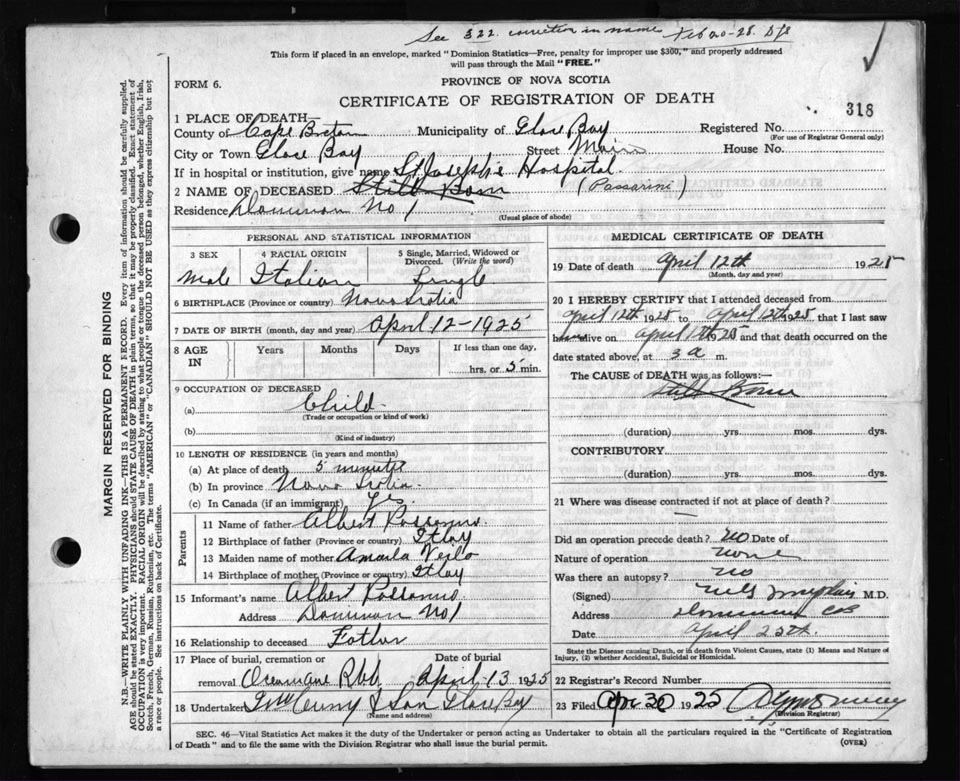 See 322. correction in name Feb 20-28.
This form if placed in an envelope, marked "Dominion Statistics—Free, penalty for improper use $300," and properly addressed
will pass through the Mail "FREE."
FORM 6.
PROVINCE OF NOVA SCOTIA
CERTIFICATE OF REGISTRATION OF DEATH
318
1 PLACE OF DEATH
County of Cape Breton Municipality of Glace Bay Registered No.
(For use of Registrar General only)
City or Town Glace Bay Street Main House No.
If in hospital or institution, give name St Joseph's Hospital
2 NAME OF DECEASED Still Born (Passarini)
Residence Dominion No 1
(Usual place of abode)
PERSONAL AND STATISTICAL INFORMATION
3 SEX 4 RACIAL ORIGIN 5 Single, Married, Widowed or
Divorced. (Write the word)
Male Italian Single
6 BIRTHPLACE (Province or country) Nova Scotia
7 DATE OF BIRTH (month, day and year) April 12-1925
8 AGE IN Years Months Days If less than one day,
hrs. or 5 min.
9 OCCUPATION OF DECEASED
(a) Child
(Trade or occupation or kind of work)
(b)
(Kind of industry)
10 LENGTH OF RESIDENCE (in years and months)
(a) At place of death 5 minutes
(b) In province Nova Scotia
(c) In Canada (if an immigrant) Yes
Parents
11 Name of father Albert
12 Birthplace of father (Province or country) Itlay
13 Maiden name of mother
14 Birthplace of mother (Province or country) Itlay
15 Informant's name Albert
Address Dominion No 1
16 Relationship to deceased Father
17 Place of burial, cremation or Date of burial
removal April 13 1925
18 Undertaker & Son Glace Bay
(Name and address)
MEDICAL CERTIFICATE OF DEATH
19 Date of death April 12th 1925
(Month, day and year)
20 I HEREBY CERTIFY that I attended deceased from
April 12th 1925 to April 12th 1925 that I last saw
h alive on April 12th 1925 and that death occurred on the
date stated above, at 3 a m.
The CAUSE of DEATH was as follows:—
Still Born
(duration) yrs. mos. dys.
CONTRIBUTORY
(duration) yrs. mos. dys.
21 Where was disease contracted if not at place of death?
—
Did an operation precede death? No Date of
Nature of operation None
Was there an autopsy? No
(Signed) M.D.
Address Dominion CB
Date April 25th.
State the Disease causing Death, or in death from Violent Causes, state (1) Means and Nature of
Injury, (2) whether Accidental, Suicidal or Homicidal.
22 Registrar's Record Number
23 Filed Apr 30 1925
(Division Registrar)
SEC. 46—Vital Statistics Act makes it the duty of the Undertaker or person acting as Undertaker to obtain all the particulars required in the "Certificate of Registration
of Death" and to file the same with the Division Registrar who shall issue the burial permit.
(OVER)
MARGIN RESERVED FOR BINDING
N.B.—WRITE PLAINLY WITH UNFADING INK—THIS IS A PERMANENT RECORD. Every item of information should be carefully supplied.
AGE should be stated EXACTLY. PHYSICIANS should STATE CAUSE OF DEATH in plain terms, so that it may be properly classified. Exact statement of
OCCUPATION is very important. RACIAL ORIGIN will be described by stating to what people or tongue the deceased person belonged, whether English, Irish,
Scotch, French, German, Russian, Ruthenian, etc. The terms "AMERICAN" or "CANADIAN" SHOULD NOT BE USED as they express citizenship but not
a race or people. See instructions on back of Certificate.